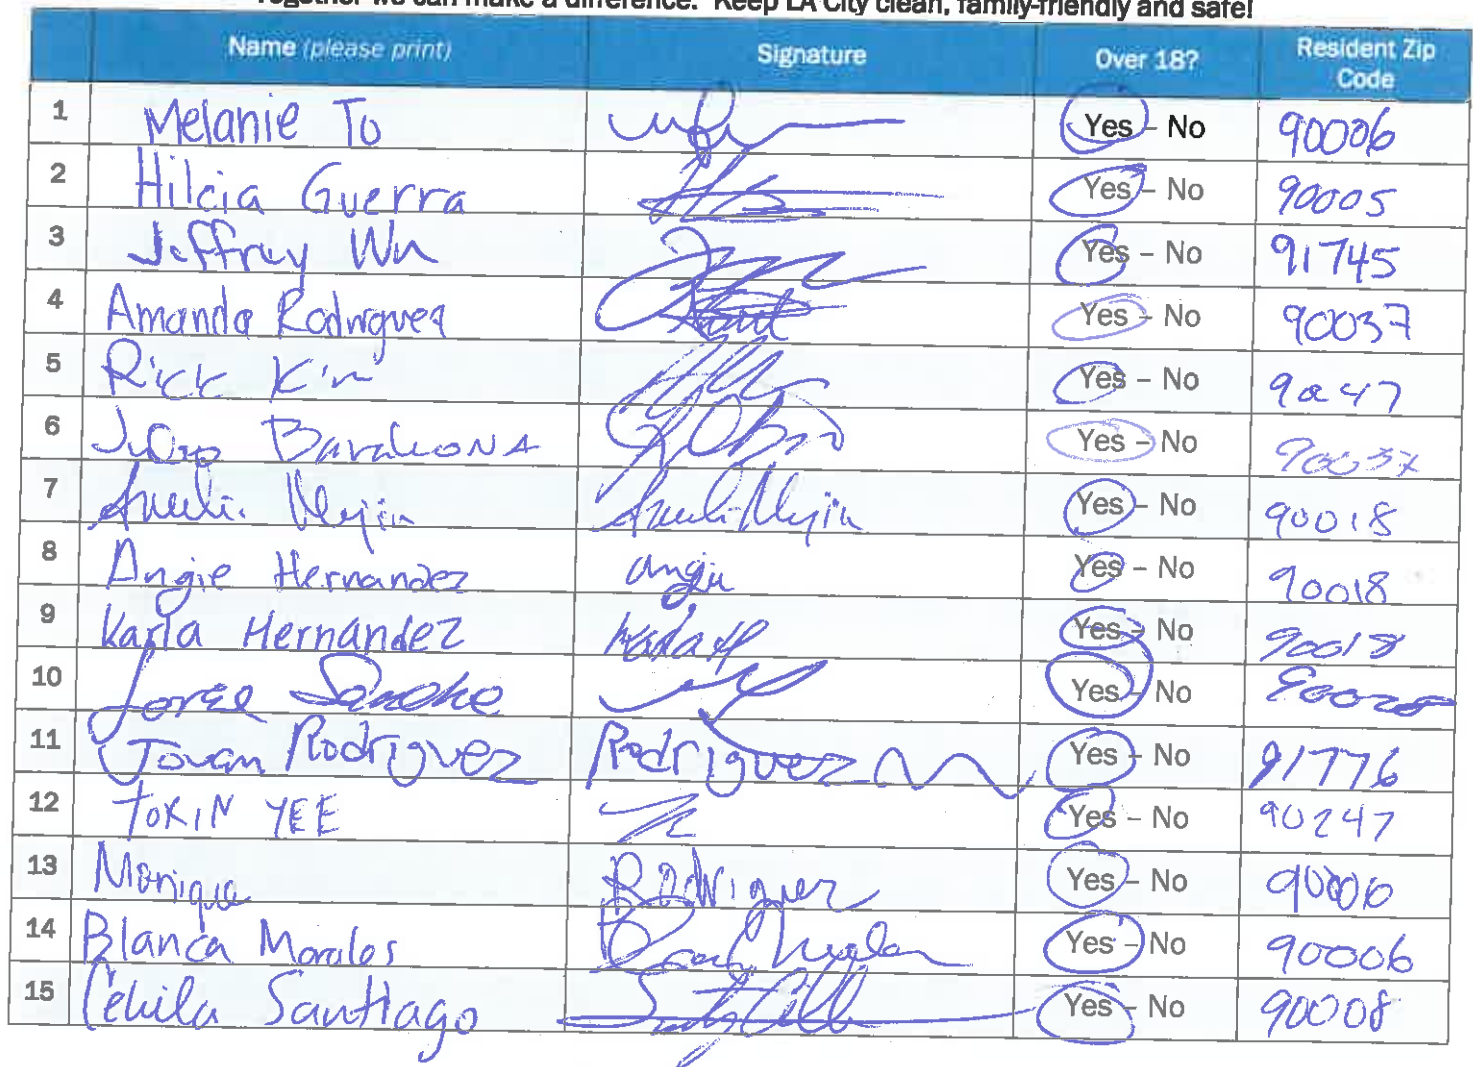 Together we can make a difference. Keep LA City clean, family-friendly and safe!
Name (please print) Signature Over 18? Resident Zip Code
1 Melanie To Yes - No 90006
2 Hilcia Guerra Yes - No 90005
3 Jeffrey Wu Yes - No 91745
4 Amanda Rodriguez Yes - No 90037
5 Rick Kim Yes - No
6 Barahona Yes - No 90037
7 Yes - No 90018
8 Angie Hernandez Angie Yes - No 90018
9 Karla Hernandez Karla H Yes - No 90018
10 Jorge Yes - No
11 Jovan Rodriguez Rodriguez Yes - No 91776
12 TOKIN YEE Yes - No 90247
13 Monique Rodriguez Yes - No 90006
14 Blanca Morales Yes - No 90006
15 Santiago Yes - No 90008